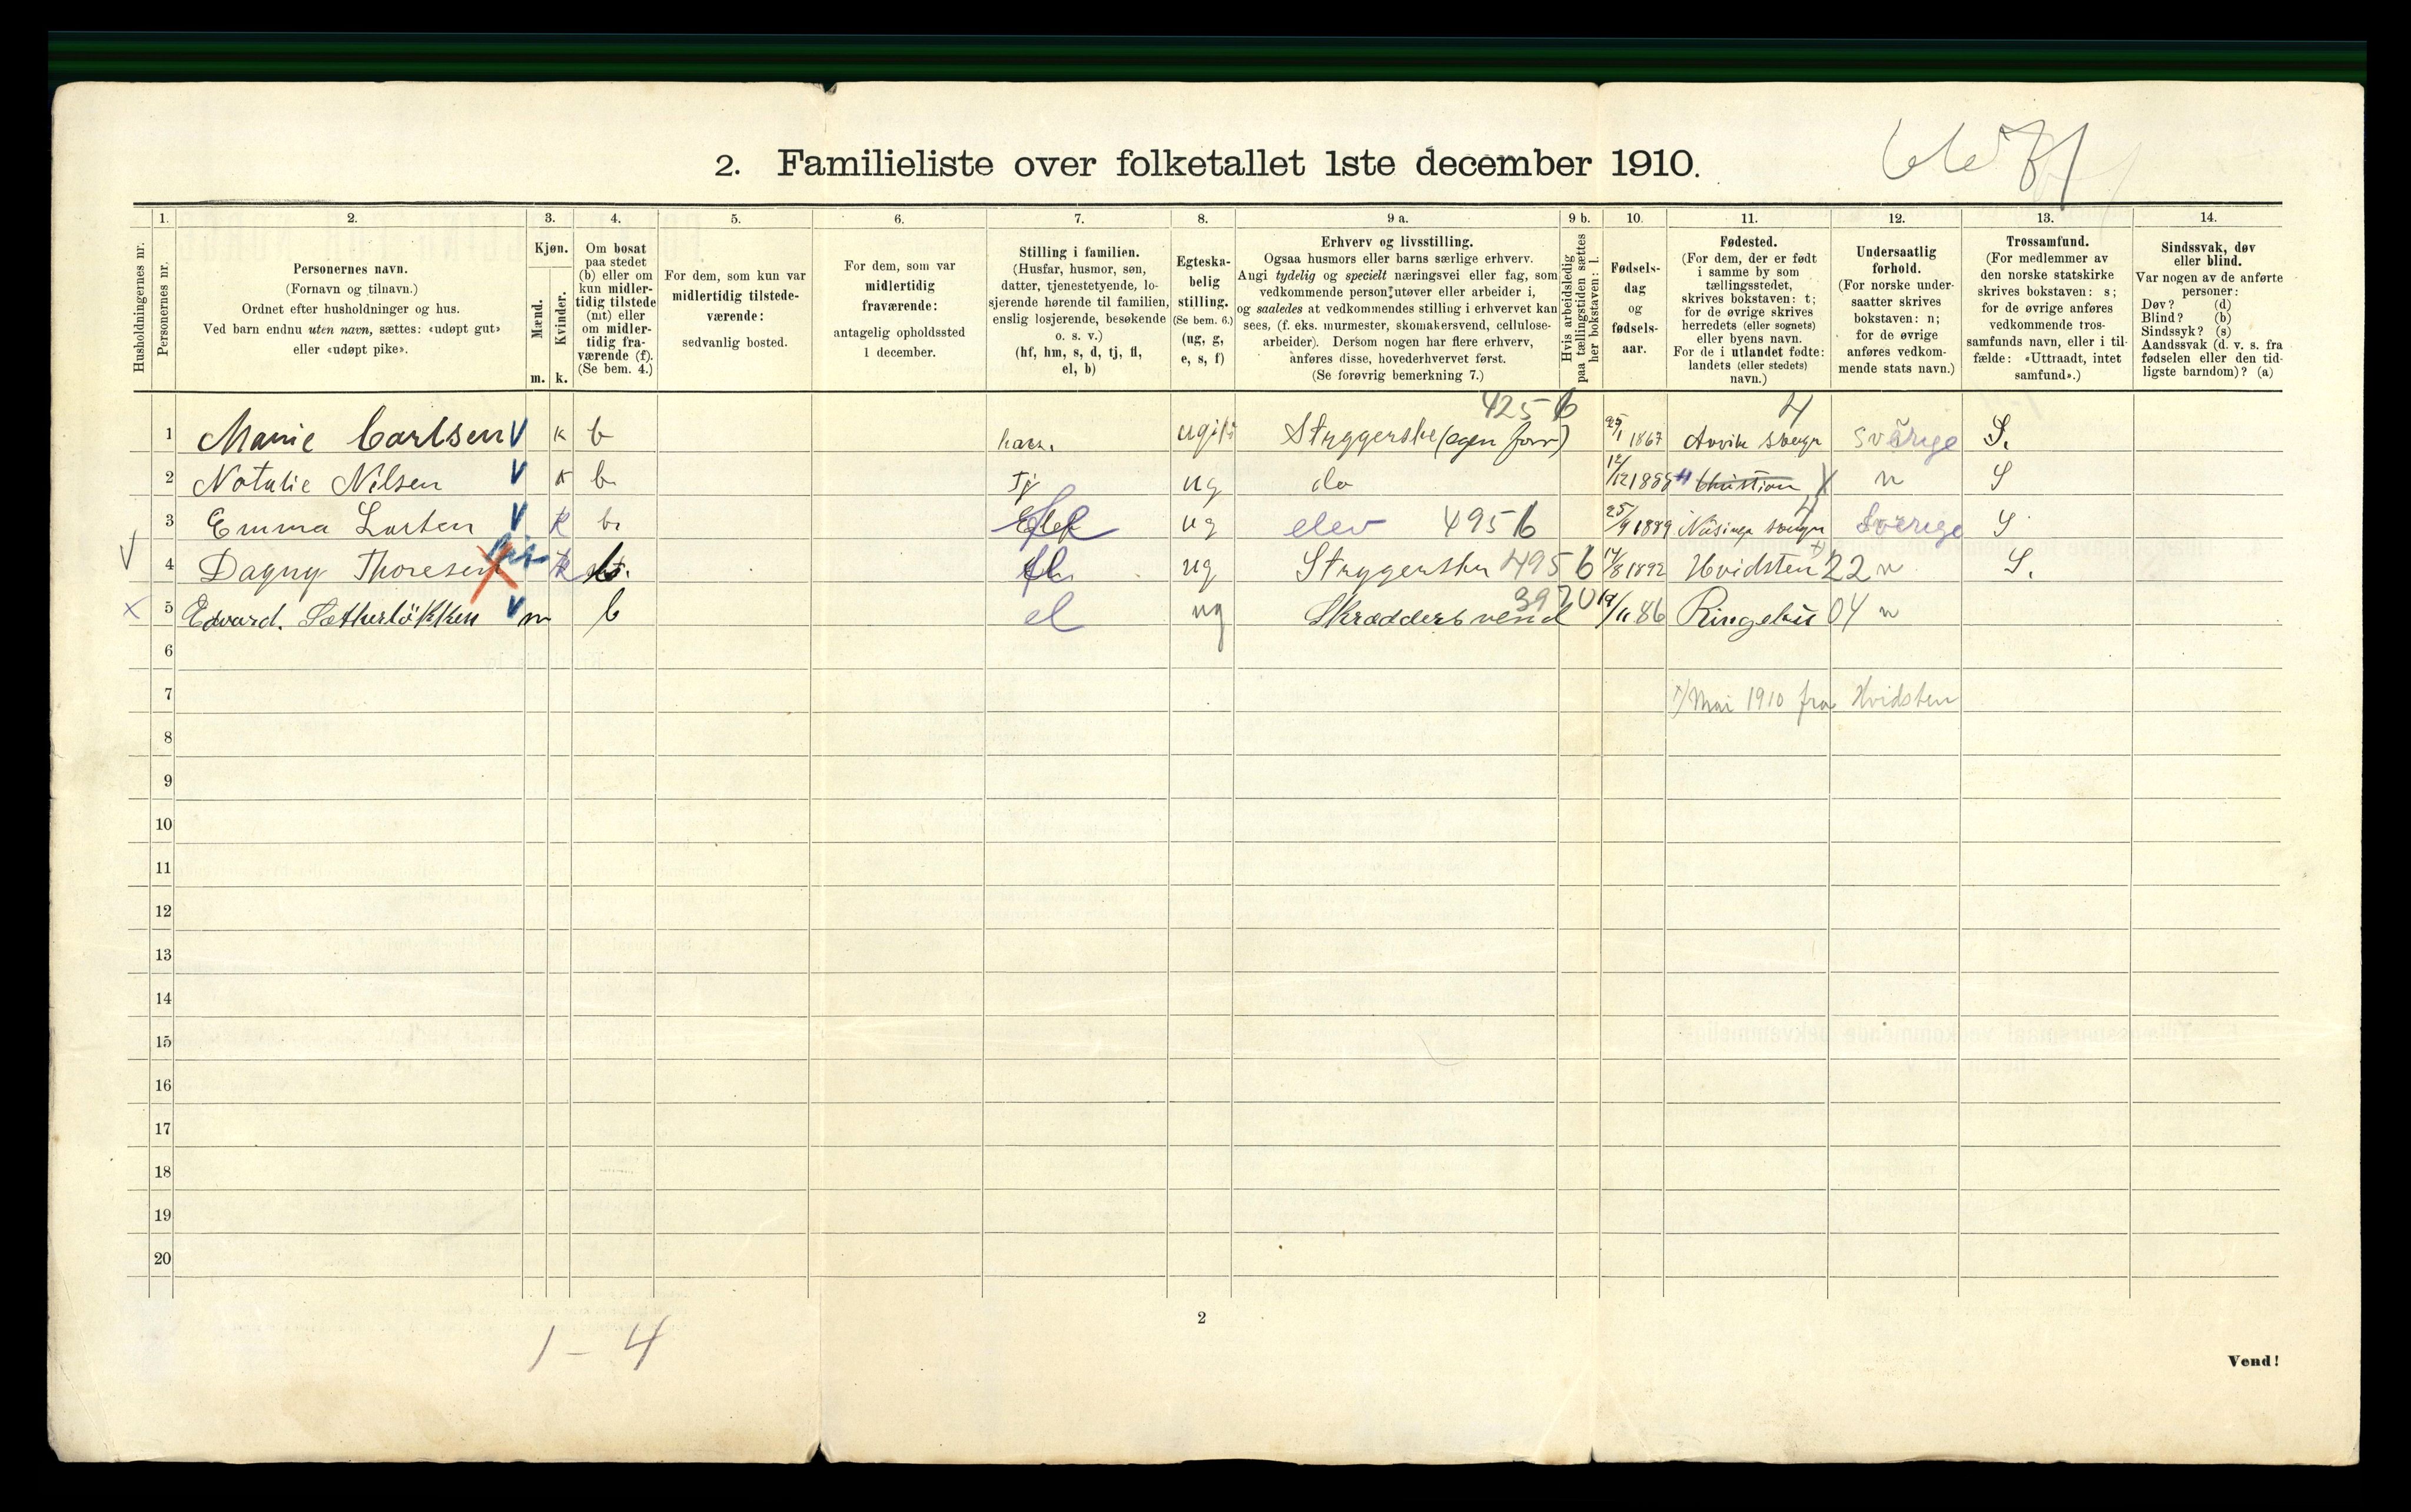 2. Familieliste over folketallet 1ste december 1910.
1. 2. 3. 4. 5. 6. 7. 8. 9 a. 9 b. 10. 11. 12. 13. 14.
Husholdningernes nr.
Personernes nr.
Personernes navn.
(Fornavn og tilnavn.)
Ordnet efter husholdninger og hus.
Ved barn endnu uten navn, sættes: «udøpt gut»
eller «udøpt pike».
Kjøn.
Mænd.
Kvinder.
m. k.
Om bosat
paa stedet
(b) eller om
kun midler-
tidig tilstede
(mt) eller
om midler-
tidig fra-
værende (f).
(Se bem. 4.)
For dem, som kun var
midlertidig tilstede-
værende:
sedvanlig bosted.
For dem, som var
midlertidig
fraværende:
antagelig opholdssted
1 december.
Stilling i familien.
(Husfar, husmor, søn,
datter, tjenestetyende, lo-
sjerende hørende til familien,
enslig losjerende, besøkende
o. s. v.)
(hf, hm, s, d, tj, fl,
el, b)
Egteska-
belig
stilling.
(Se bem. 6.)
(ug, g,
e, s, f)
Erhverv og livsstilling.
Ogsaa husmors eller barns særlige erhverv.
Angi tydelig og specielt næringsvei eller fag, som
vedkommende person utøver eller arbeider i,
og saaledes at vedkommendes stilling i erhvervet kan
sees, (f. eks. murmester, skomakersvend, cellulose-
arbeider). Dersom nogen har flere erhverv,
anføres disse, hovederhvervet først.
(Se forøvrig bemerkning 7.)
Hvis arbeidsledig
paa tællingstiden sættes
her bokstaven: l.
Fødsels-
dag
og
fødsels-
aar.
Fødested.
(For dem, der er født
i samme by som
tællingsstedet,
skrives bokstaven: t;
for de øvrige skrives
herredets (eller sognets)
eller byens navn.
For de i utlandet fødte:
landets (eller stedets)
navn.)
Undersaatlig
forhold.
(For norske under-
saatter skrives
bokstaven: n;
for de øvrige
anføres vedkom-
mende stats navn.)
Trossamfund.
(For medlemmer av
den norske statskirke
skrives bokstaven: s;
for de øvrige anføres
vedkommende tros-
samfunds navn, eller i til-
fælde: «Uttraadt, intet
samfund».)
Sindssvak, døv
eller blind.
Var nogen av de anførte
personer:
Døv? (d)
Blind? (b)
Sindssyk? (s)
Aandssvak (d. v. s. fra
fødselen eller den tid-
ligste barndom)? (a)
4256
1 Marie Carlsen V k b ugift Stryggerske (egen forr) 1867 Sverige S.
2 Natalie Nilsen V k b Tj ug do n S
3 Emma Larsen V k b. ug elev 4956 25/9 1889 Sverige S
4 Dagny Thoresen k b. ug 4956 14/8 1892 Hvidsten 22 n S.
3920
5 Edvard. Sætherløkken V m b el ug Skræddersvend 19/11 86 Ringebu 04 n
6
7 x) Mai 1910 fra Hvidsten
8
9
10
11
12
13
14
15
16
17
18
19
20
2
1 - 4
Vend!